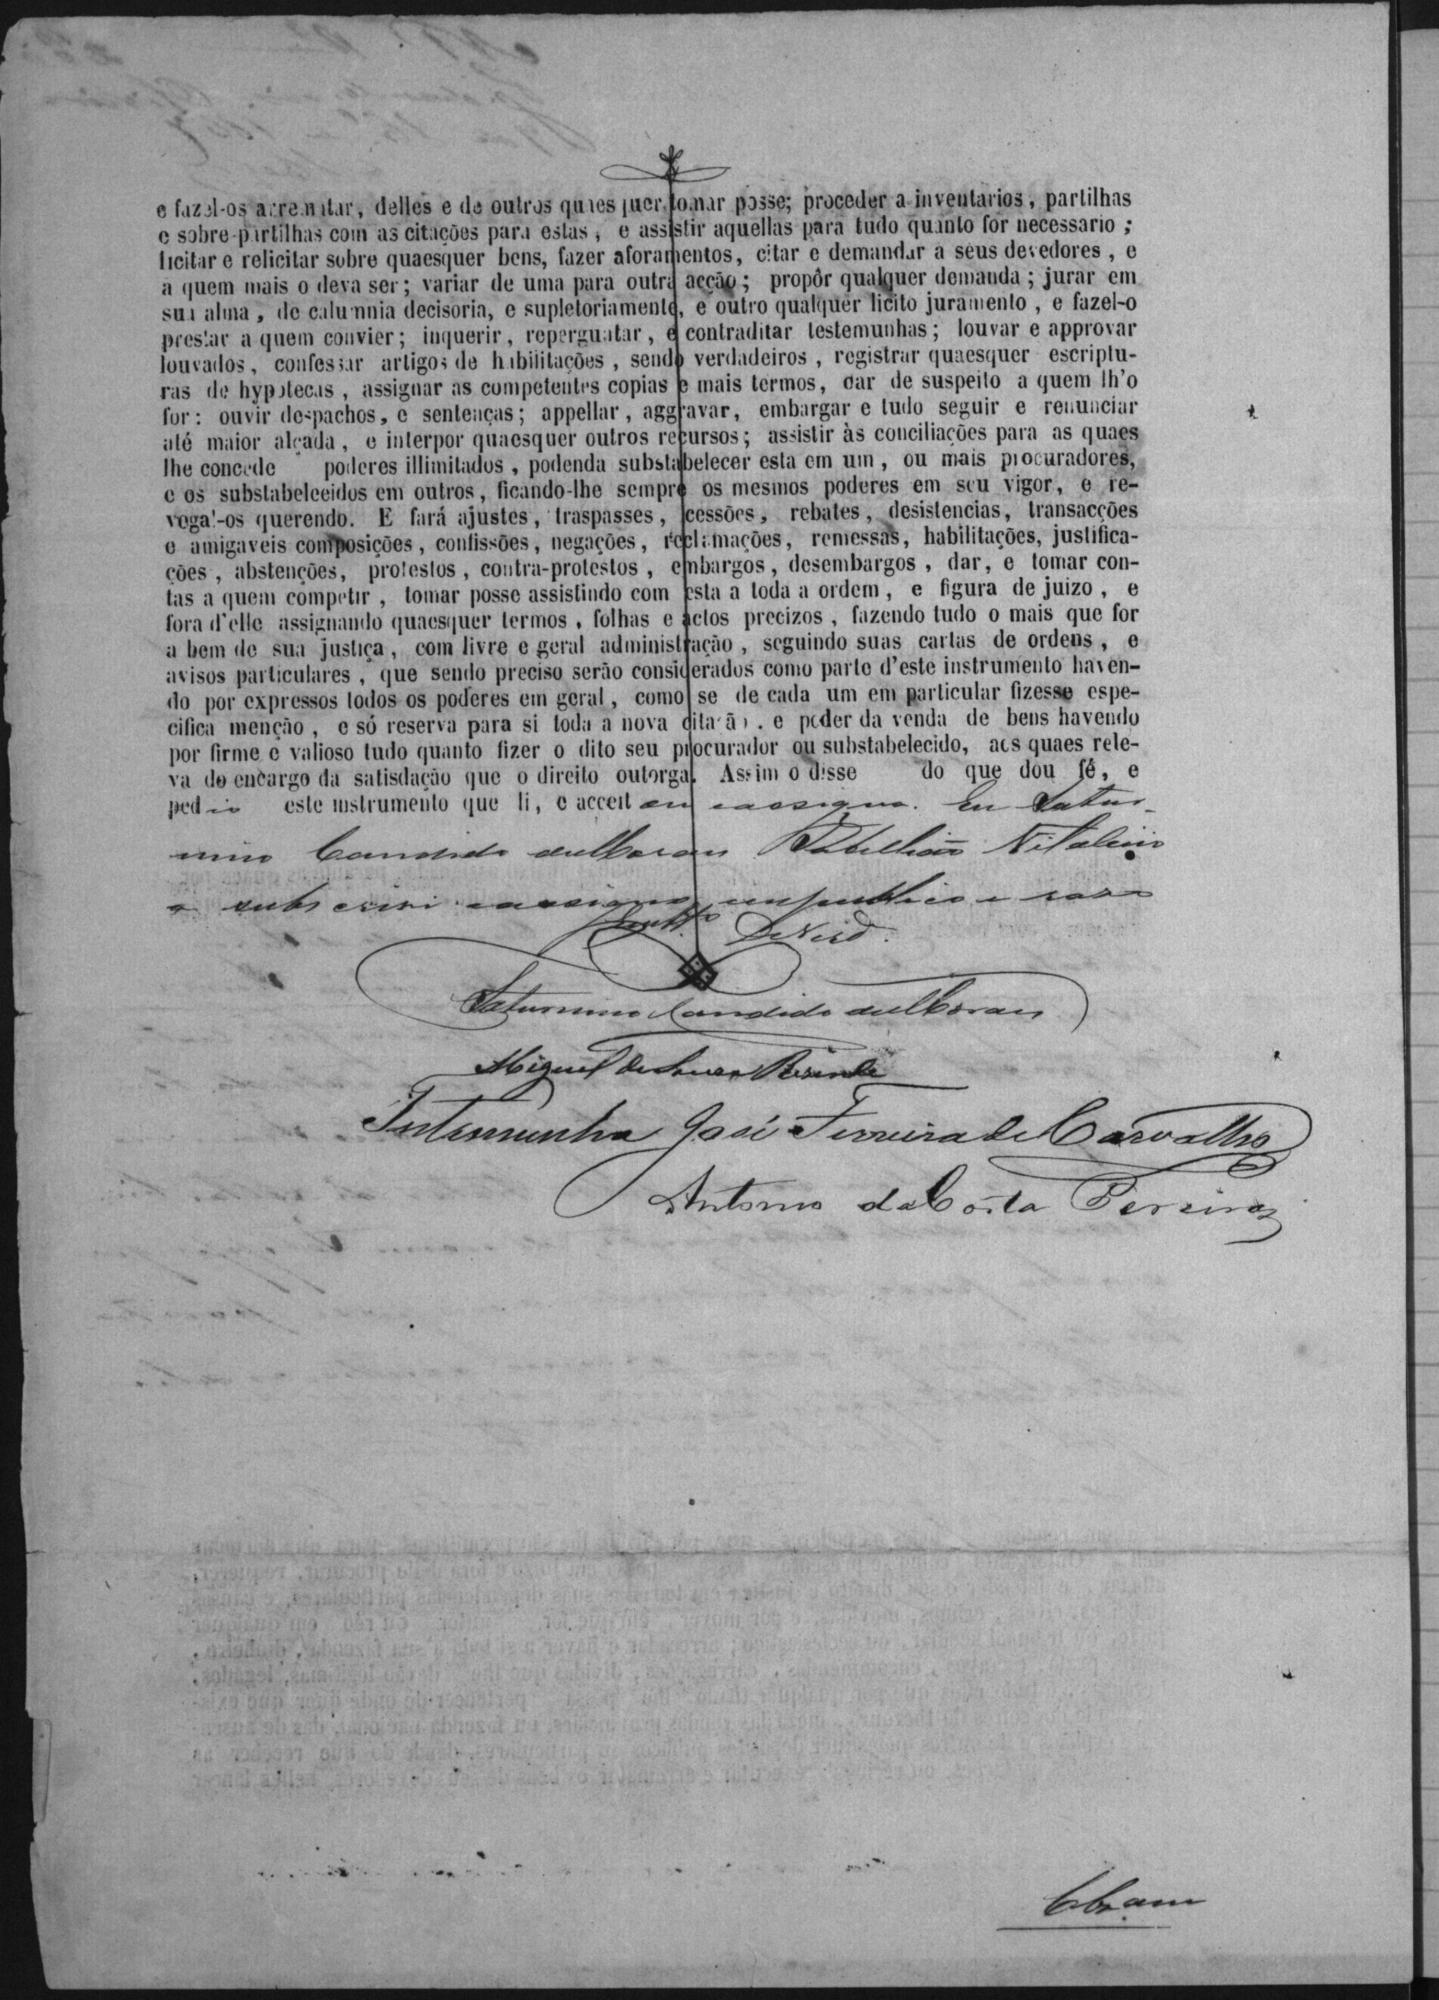 e fazel-os arrematar, delles e de outros quaesquer tomar posse; proceder a inventarios, partilhas
e sobre-partilhas com as citações para estas, e assistir aquellas para tudo quanto for necessario;
licitar e relicitar sobre quaesquer bens, fazer aforamentos, citar e demandar a seus devedores, e
a quem mais o deva ser; variar de uma para outra acção; propôr qualquer demanda; jurar em
sua alma, de calumnia decisoria, e supletoriamente, e outro qualquer licito juramento, e fazel-o
prestar a quem convier; inquerir, reperguntar, e contraditar testemunhas; louvar e approvar
louvados, confessar artigos de habilitações, sendo verdadeiros, registrar quaesquer escriptu-
ras de hypotecas, assignar as competentes copias e mais termos, dar de suspeito a quem lh'o
for: ouvir despachos, e sentenças; appellar, aggravar, embargar e tudo seguir e renunciar
até maior alçada, e interpor quaesquer outros recursos; assistir às conciliações para as quaes
lhe concede poderes illimitados, podenda substabelecer esta em um, ou mais procuradores,
e os substabeleeidos em outros, ficando-lhe sempre os mesmos poderes em seu vigor, e re-
voga'-os querendo. E fará ajustes, traspasses, cessões, rebates, desistencias, transacções
e amigaveis composições, confissões, negações, reclamações, remessas, habilitações, justifica-
ções, abstenções, protestos, contra-protestos, embargos, desembargos, dar, e tomar con-
tas a quem competir, tomar posse assistindo com esta a toda a ordem, e figura de juizo, e
fora d'elle assignando quaesquer termos, folhas e actos precizos, fazendo tudo o mais que for
a bem de sua justiça, com livre e geral administração, seguindo suas cartas de ordens, e
avisos particulares, que sendo preciso serão considerados como parte d'este instrumento haven-
do por expressos todos os poderes em geral, como se de cada um em particular fizesse espe-
cifica menção, e só reserva para si toda a nova citação. e poder da venda de bens havendo
por firme e valioso tudo quanto fizer o dito seu procurador ou substabelecido, aos quaes rele-
va do encargo da satisdação que o direito outorga. Assim o disse do que dou fé, e
pedio este instrumento que li, e acceitou e assigna. Eu Satur-
nino Candido de Moraes Tabellião Vitalicio
o subscrevi e assigno em publico e raso
Saturnino Candido de Moraes
Miguel de Souza Rezende
Testemunha José Ferreira de Carvalho
Antonio da Costa Pereira